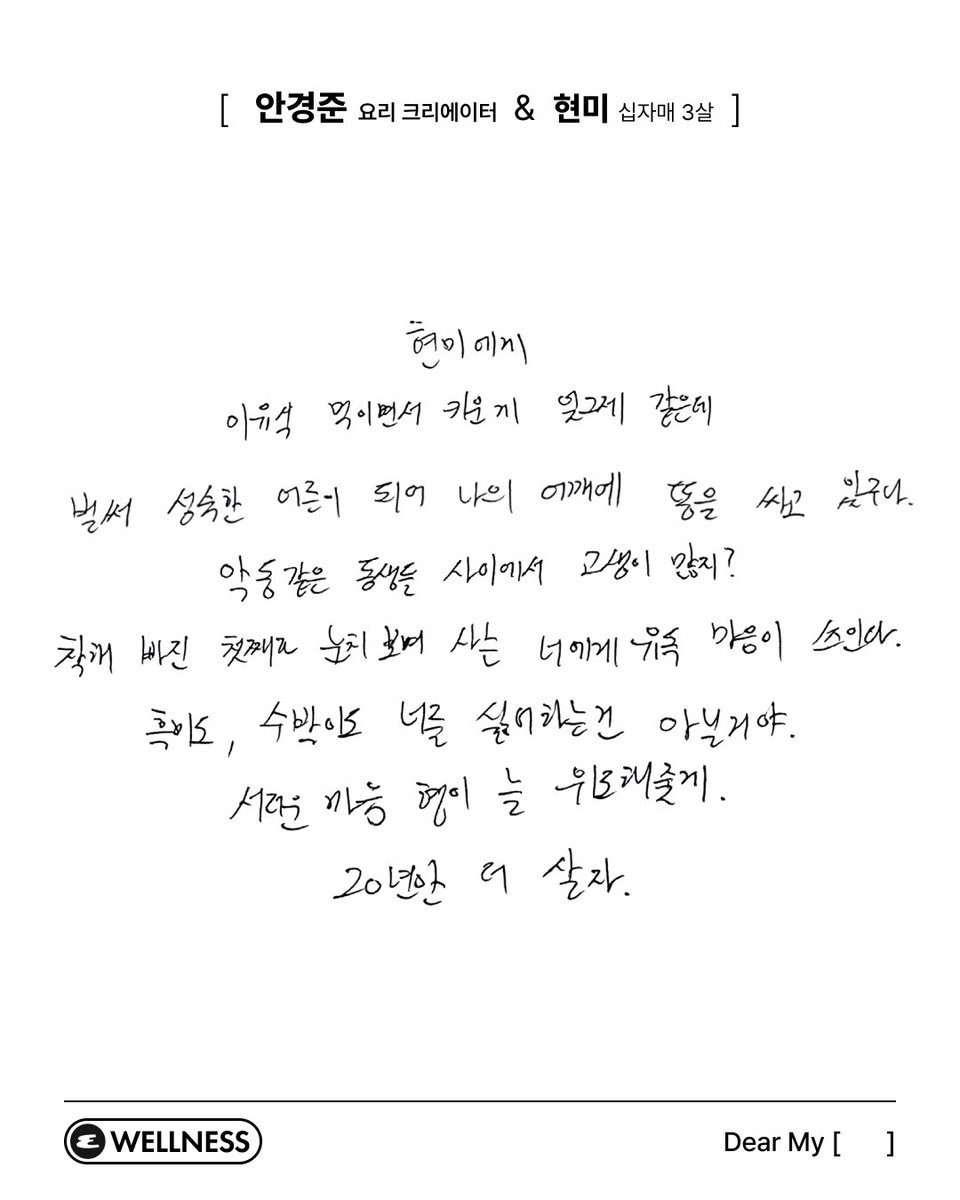 [ 안경준 요리 크리에이터 & 현미 십자매 3살 ]
현미에게
이유식 먹이면서 키운게 엊그제 같은데
벌써 성숙한 어른이 되어 나의 어깨에 똥을 싸고 있구나.
악동같은 동생들 사이에서 고생이 많지?
착해 빠진 첫째로 눈치보며 사는 너에게 유독 마음이 쓰인다.
흑미도, 수박이도 너를 싫어하는건 아닐거야.
서러운 마음 형이 늘 위로해줄게.
20년만 더 살자.
WELLNESS
Dear My [ ]